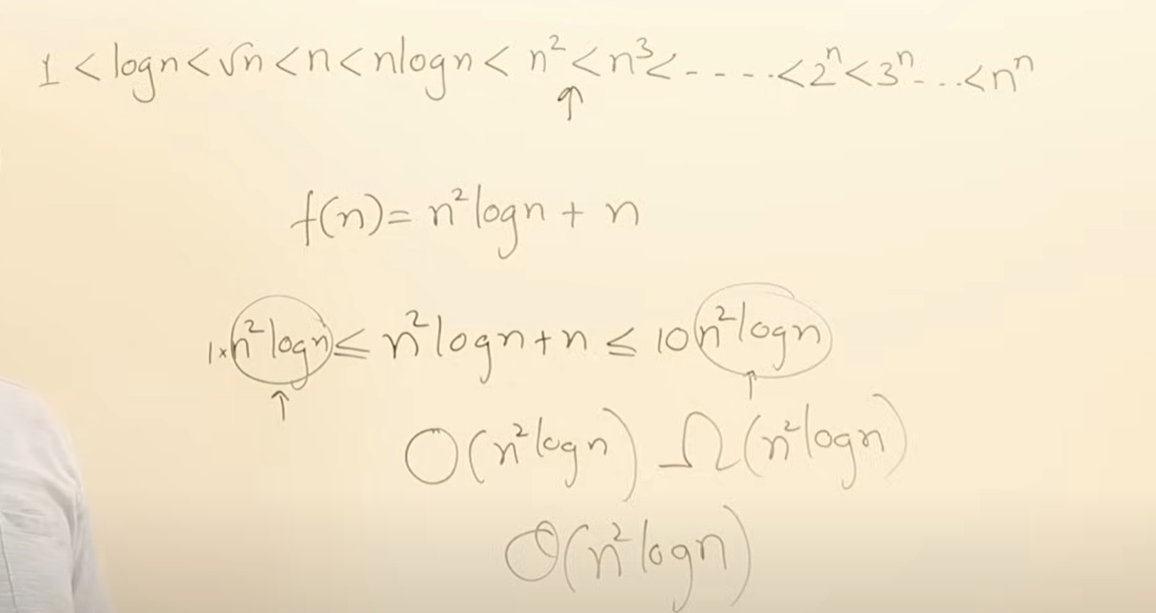 1 < logn < √n < n < nlogn < n² < n³ < - - - - < 2ⁿ < 3ⁿ - - - < nⁿ
↑
f(n) = n²logn + n
1×n²logn ≤ n²logn + n ≤ 10 n²logn
↑ ↑
O(n²logn) Ω(n²logn)
Θ(n²logn)